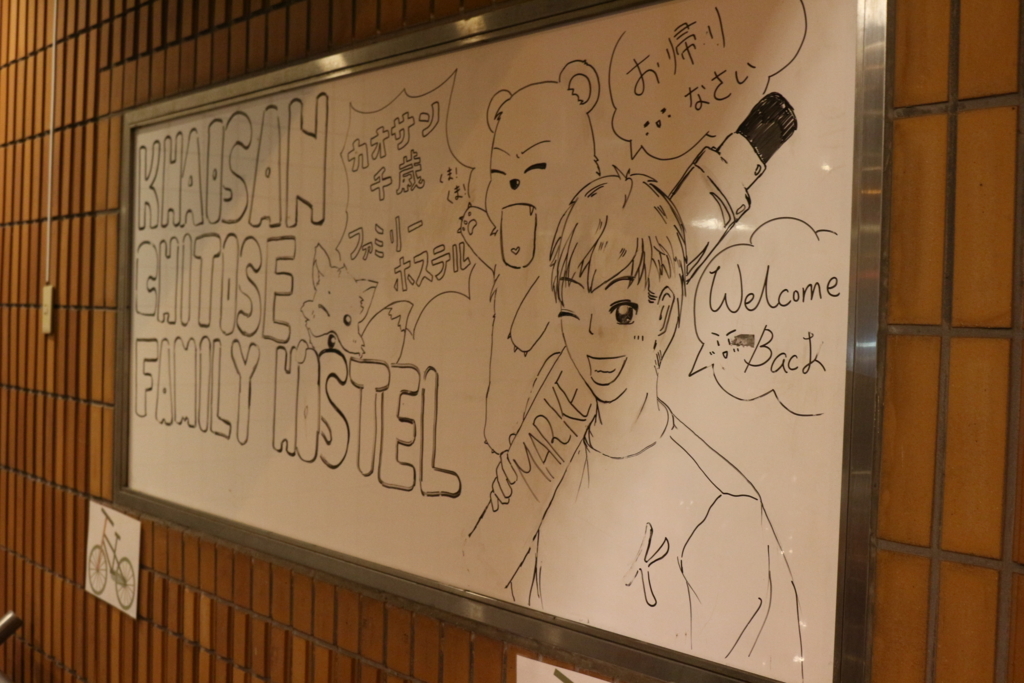 KHAOSAN
CHITOSE
FAMILY HOSTEL
カオサン
千歳
ファミリー
ホステル
くま!
くま!
お帰り
なさい
Welcome
Back
MARKE
K